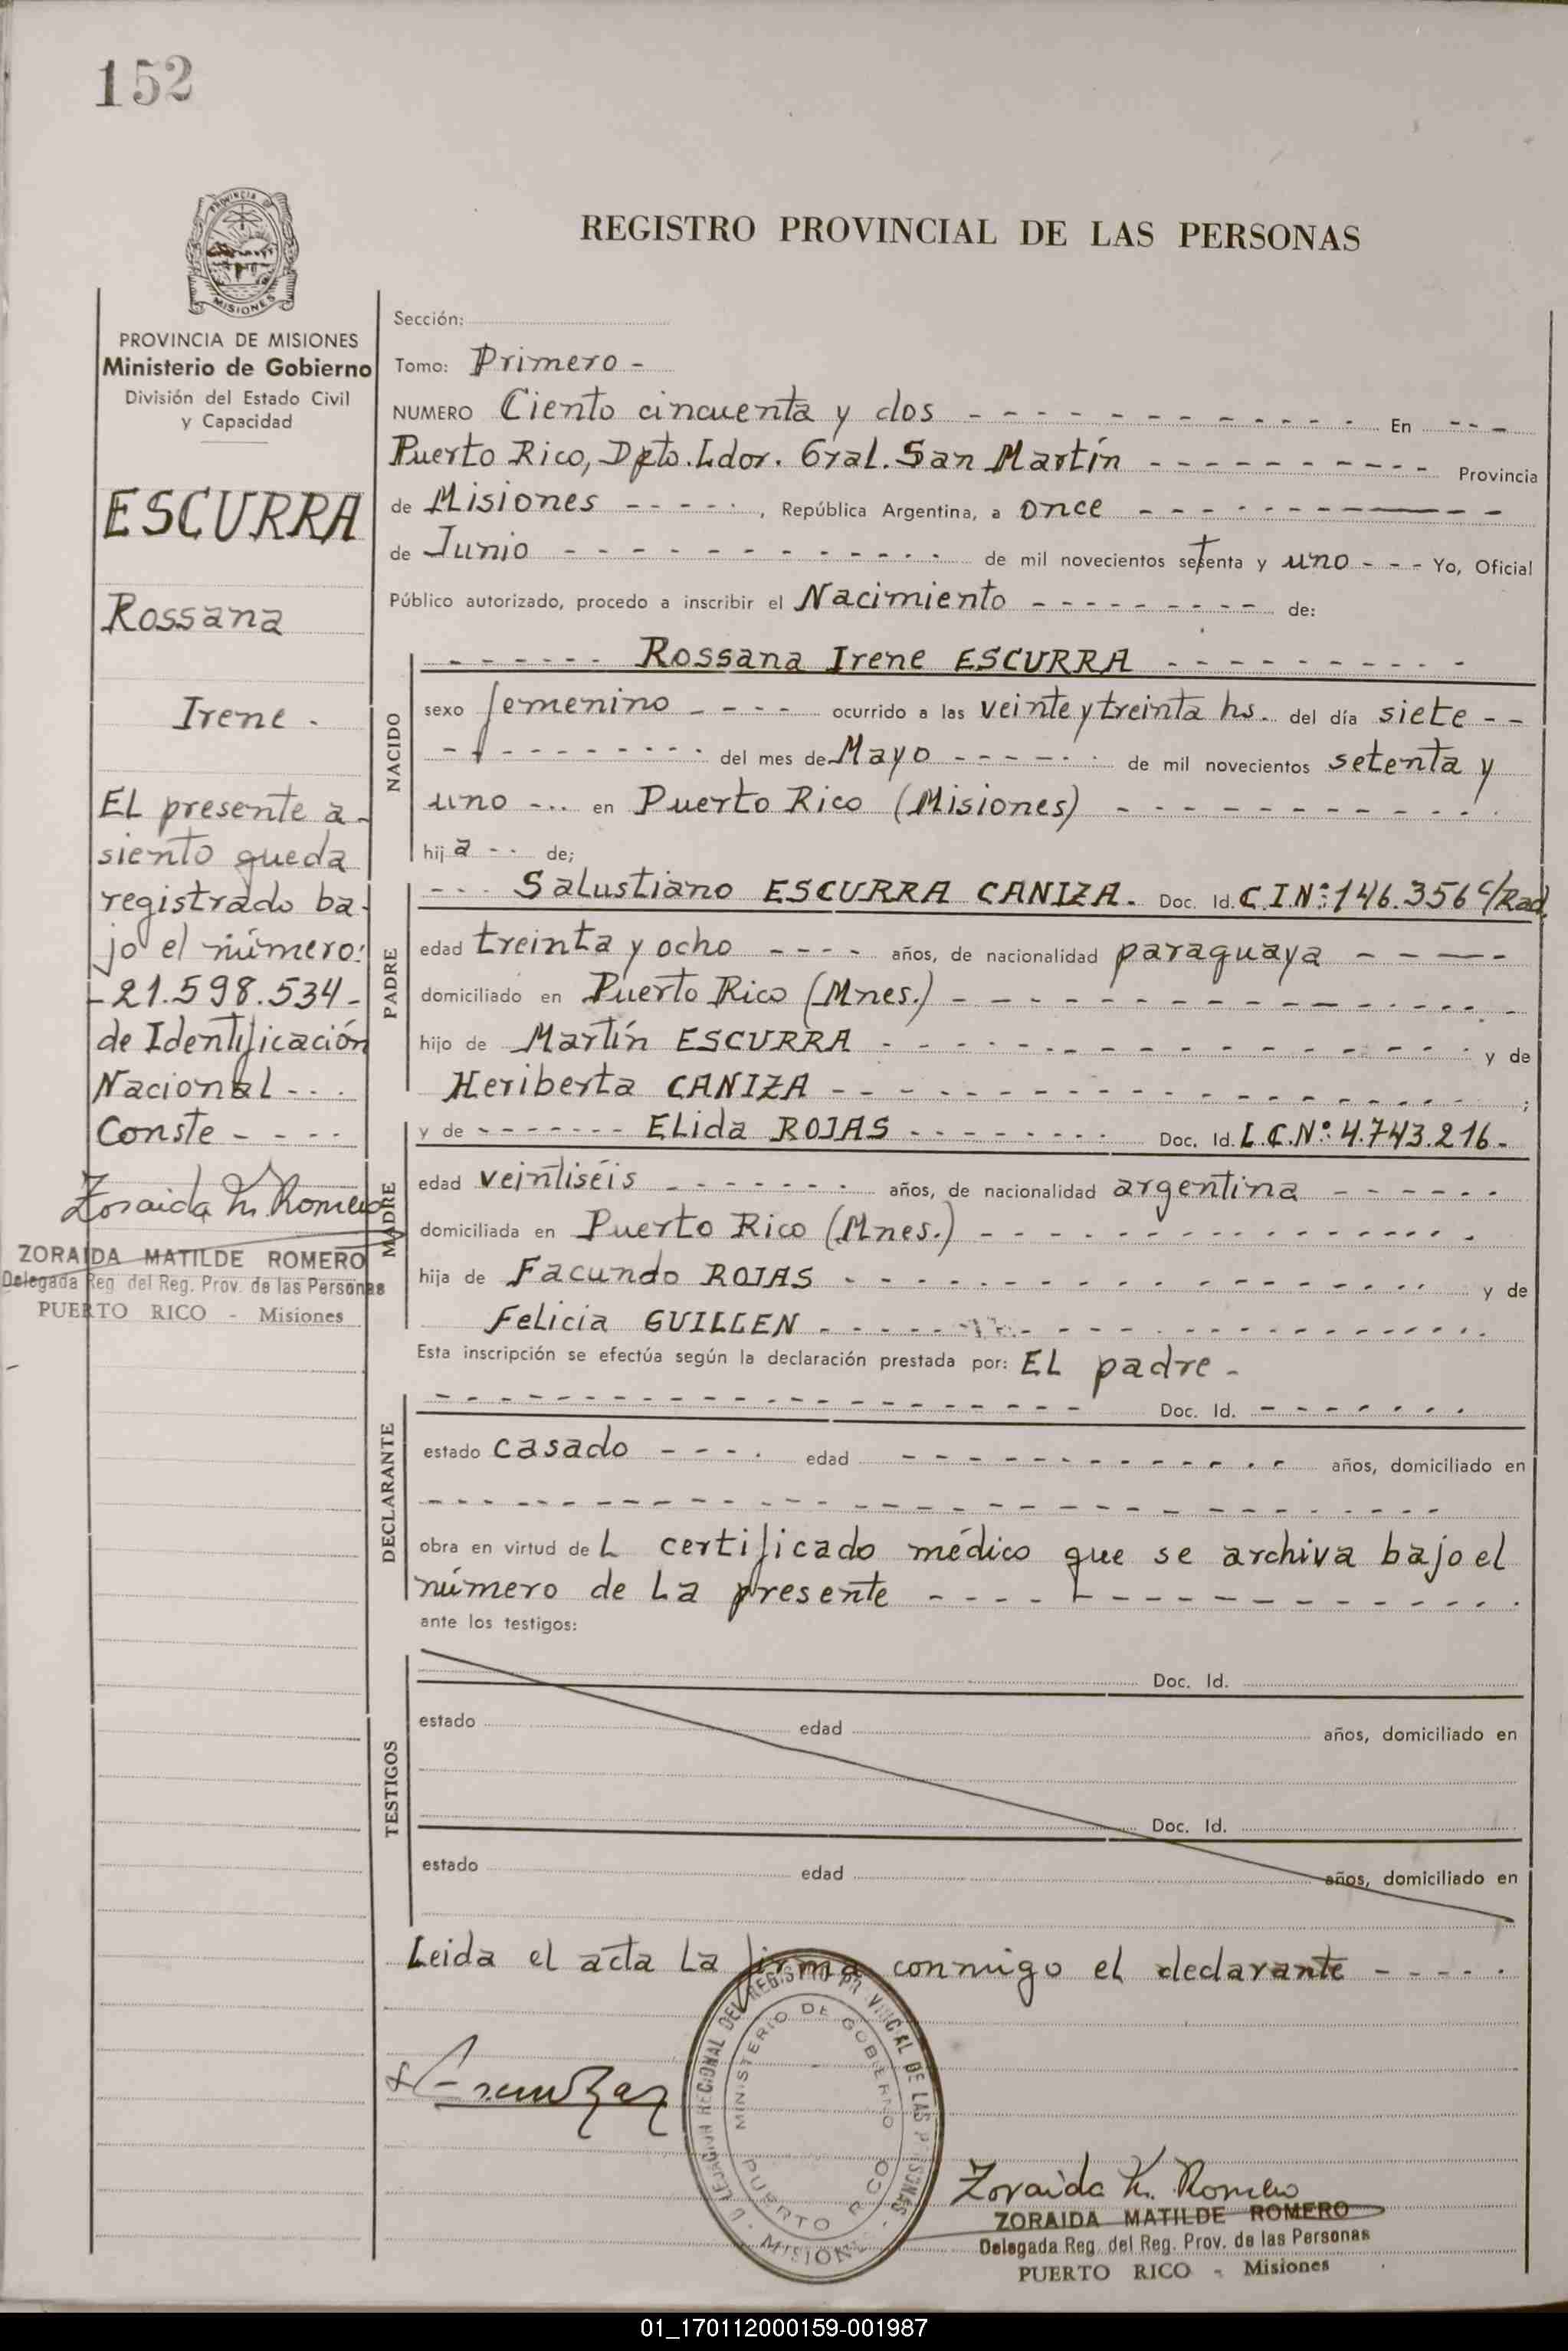 152
PROVINCIA
MISIONES
PROVINCIA DE MISIONES
Ministerio de Gobierno
División del Estado Civil
y Capacidad
ESCURRA
Rossana
Irene -
EL presente a-
siento queda
registrado ba-
jo el número:
-21.598.534-
de Identificación
Nacional - - -
Conste - - - -
Zoraida M. Romero
ZORAIDA MATILDE ROMERO
Delegada Reg. del Reg. Prov. de las Personas
PUERTO RICO - Misiones
REGISTRO PROVINCIAL DE LAS PERSONAS
Sección:
Tomo: Primero -
NUMERO Ciento cincuenta y dos - - - En - - -
Puerto Rico, Dpto. Ldor. Gral. San Martín - - - Provincia
de Misiones - - - , República Argentina, a once - - -
de Junio - - - de mil novecientos setenta y uno - - - Yo, Oficial
Público autorizado, procedo a inscribir el Nacimiento - - - de:
NACIDO
- - - Rossana Irene ESCURRA - - -
sexo femenino - - - ocurrido a las veinte y treinta hs. del día siete - -
- - - del mes de Mayo - - - de mil novecientos setenta y
uno - - - en Puerto Rico (Misiones) - - -
hij a - - de;
PADRE
- - - Salustiano ESCURRA CANIZA. Doc. Id. C.I.Nº:146.356 c/Rad.
edad treinta y ocho - - - años, de nacionalidad paraguaya - - -
domiciliado en Puerto Rico (Mnes.) - - -
hijo de Martín ESCURRA - - - y de
Heriberta CANIZA - - - ;
MADRE
y de - - - ELida ROJAS - - - Doc. Id. L.C.Nº: 4.743.216-
edad veintiséis - - - años, de nacionalidad argentina - - -
domiciliada en Puerto Rico (Mnes.) - - -
hija de Facundo ROJAS - - - y de
Felicia GUILLEN - - -
Esta inscripción se efectúa según la declaración prestada por: EL padre -
DECLARANTE
- - - Doc. Id. - - -
estado casado - - - edad - - - años, domiciliado en
- - -
obra en virtud de L certificado médico que se archiva bajo el
número de La presente - - -
ante los testigos:
TESTIGOS
Doc. Id.
estado edad años, domiciliado en
Doc. Id.
estado edad años, domiciliado en
Leida el acta La firma conmigo el declarante - - -
DELEGACION REGIONAL DEL REGISTRO PROVINCIAL DE LAS PERSONAS
MINISTERIO DE GOBIERNO
PUERTO RICO
- MISIONES -
Zoraida M. Romero
ZORAIDA MATILDE ROMERO
Delegada Reg. del Reg. Prov. de las Personas
PUERTO RICO - Misiones
01_170112000159-001987